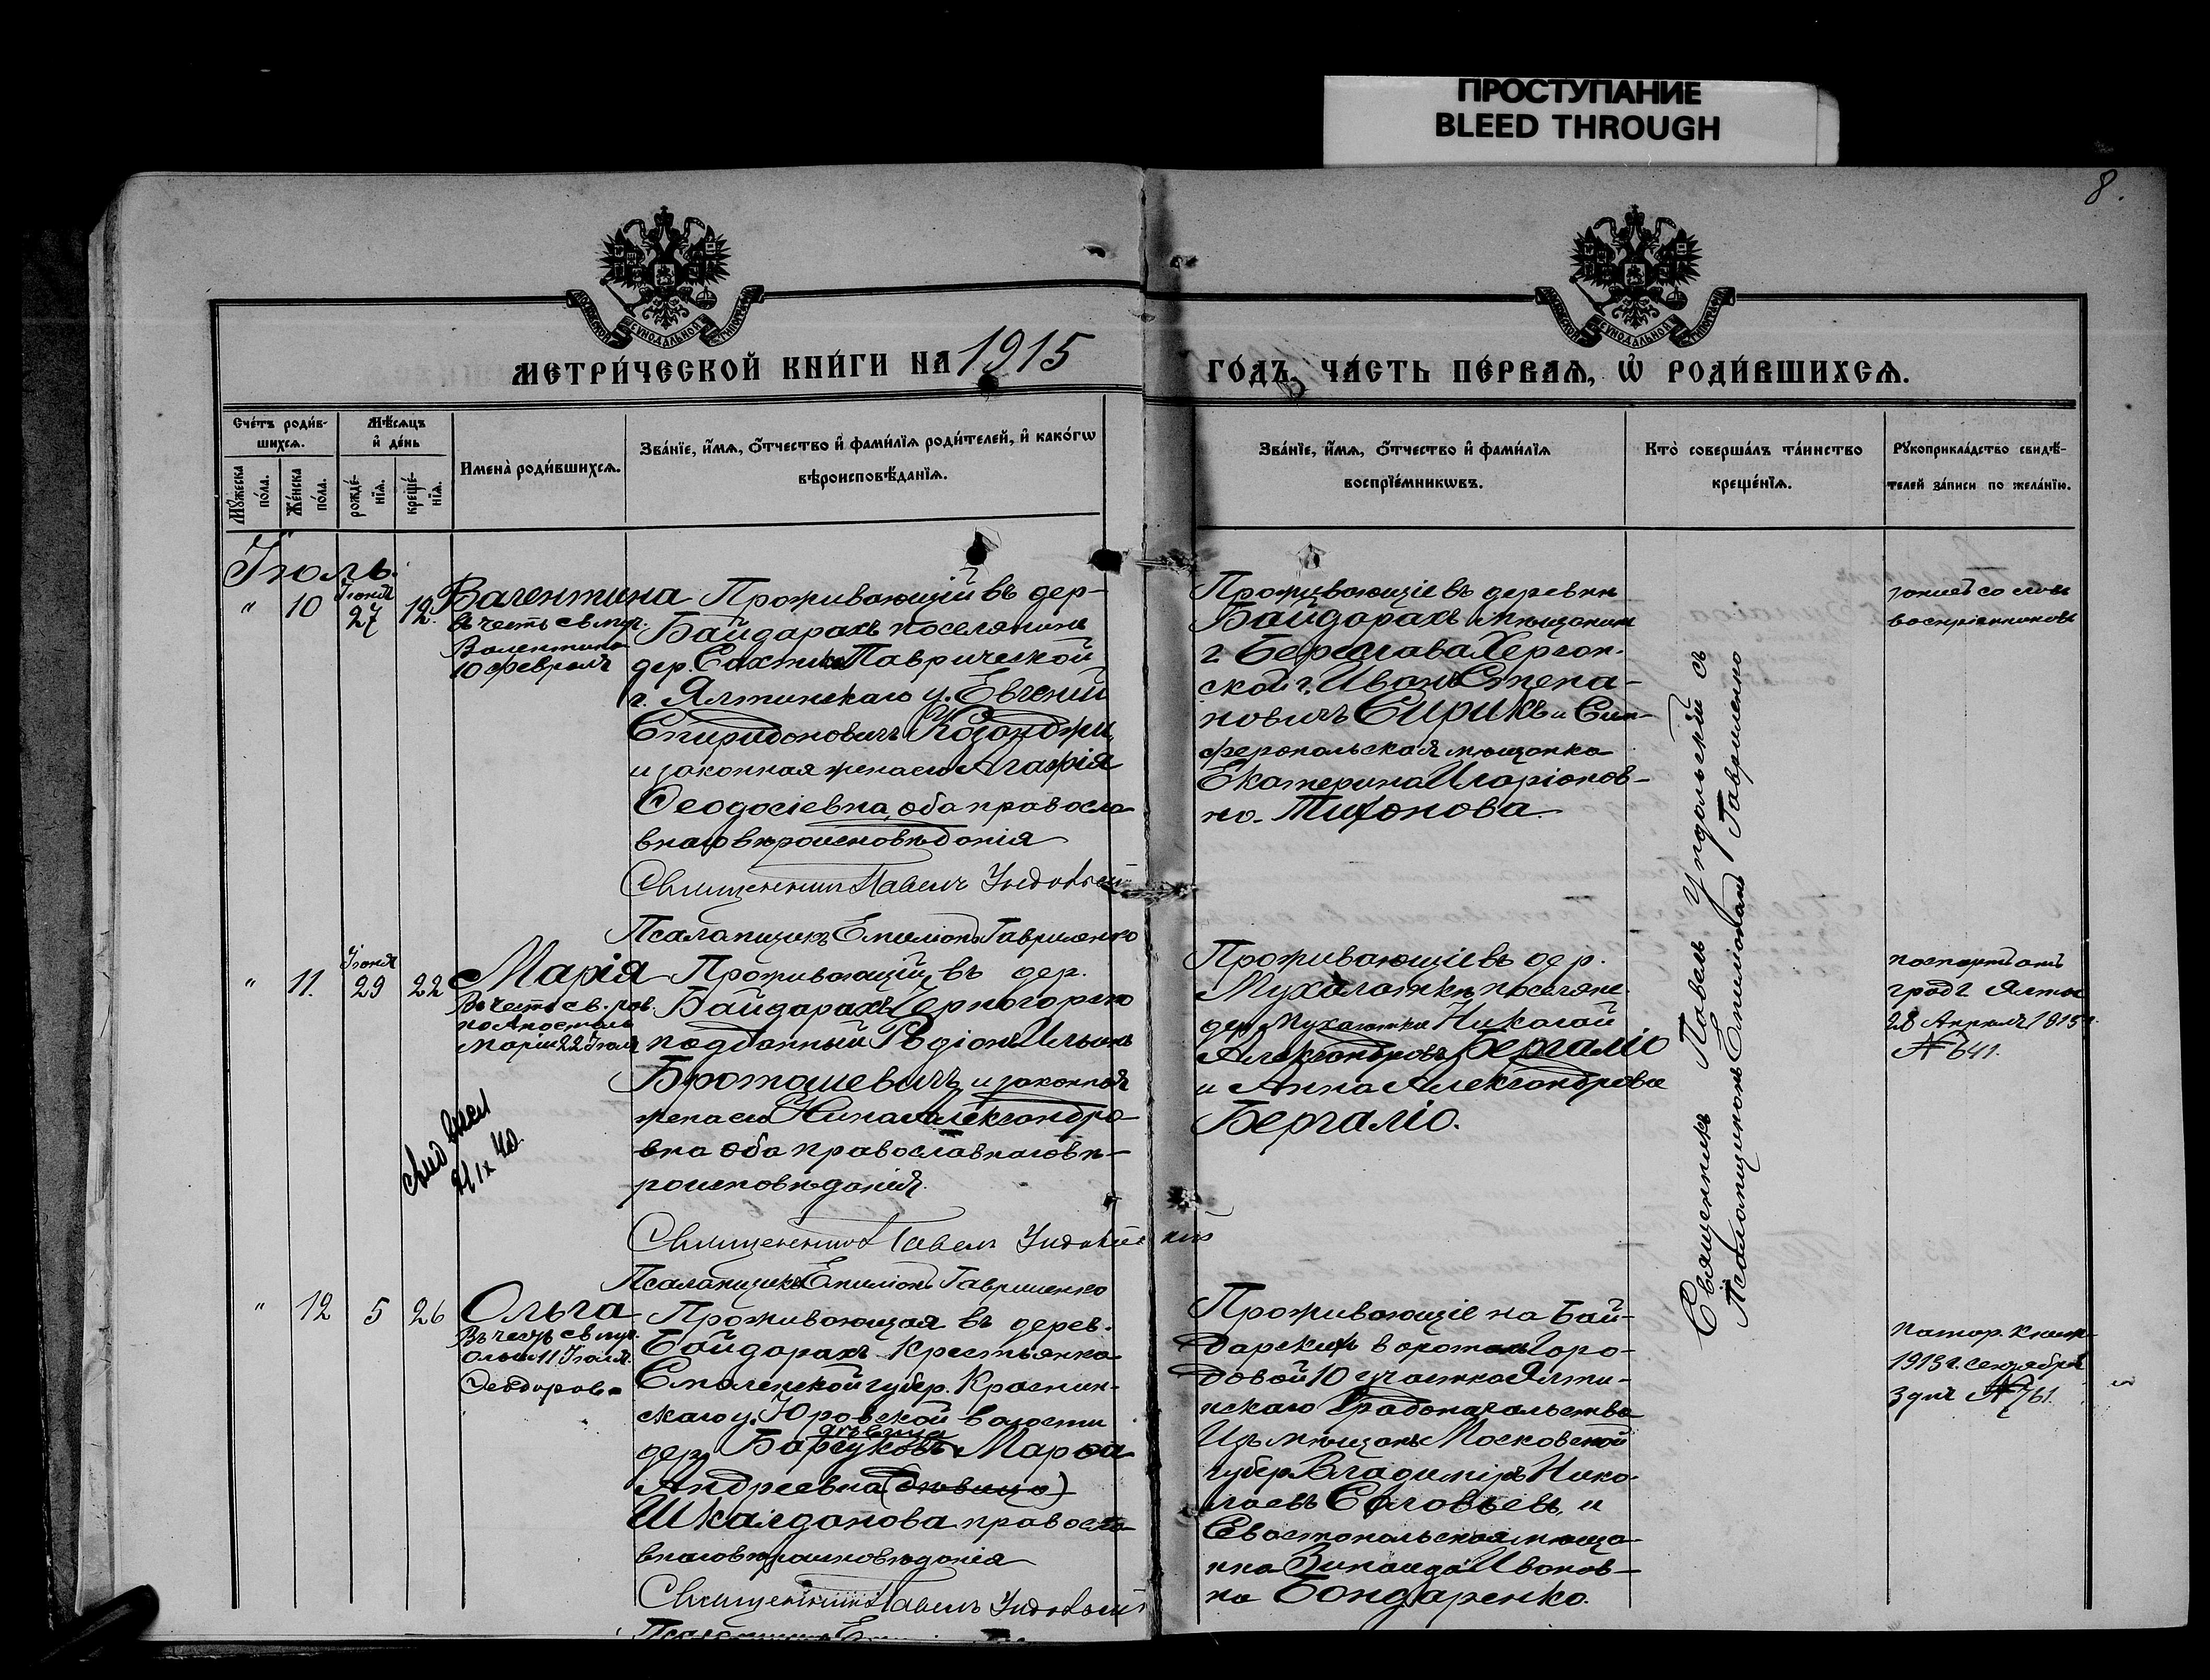 ПРОСТУПАНИЕ
BLEED THROUGH
8.
МЕТРИ́ЧЕСКОЙ КНИ́ГИ НА 1915
ГО́ДЪ, ЧА́СТЬ ПЕ́РВАѦ, Ѡ҆ РОДИ́ВШИХСѦ.
Сче́тъ роди́в-
шихсѧ.
Мѣ́сѧцъ
и҆ де́нь
Мꙋ́жеска
по́ла.
Же́нска
по́ла.
рожде́-
нїѧ.
креще́-
нїѧ.
Имена̀ роди́вшихсѧ.
Зва́нїе, и҆́мѧ, ѻ҆́тчество и҆ фами́лїѧ роди́телей, и҆ како́гѡ
вѣроисповѣ́данїѧ.
Зва́нїе, и҆́мѧ, ѻ҆́тчество и҆ фами́лїѧ
воспрїе́мникѡвъ.
Кто̀ соверша́лъ та́инство
креще́нїѧ.
Рꙋкоприкла́дство свидѣ́-
телей за́писи по жела́нїю.
Іюль.
" 10 Іюня 27 12.
Валентина
въ честь св. мр.
Валентины
10 февраля
Проживающій въ дер-
Байдарахъ поселянинъ
дер. Таврической
г. Ялтинскаго у. Евгеній
Спиридоновичъ
и законная жена его Агафія
Ѳеодосіевна, оба правосла-
внаго вѣроисповѣданія
Священникъ Павелъ Ундольскій
Псаломщикъ Емиліонъ Гавриленко
Проживающіе въ деревни
Байдарахъ мѣщанинъ
г. Береслава Херсон-
ской г. Иванъ Степа-
новичъ Сирикъ и Сим-
феропольская мѣщанка
Екатерина Иларіонов-
на Тихонова.
со словъ
воспріемниковъ
Священникъ Павелъ Ундольскій съ
Псаломщикомъ Емиліономъ Гавриленко
" 11. Іюня 29 22
Марія
Въ честь св. рав.
но Апостольн.
Маріи 22 Іюля
Проживающій въ дер.
Байдарахъ Черногорско
подданный Родіонъ Ильинъ
Братошевичъ и законная
жена его Нина Александро-
вна оба православнаго вѣ-
роисповѣданія.
Священникъ Павелъ Ундольскій
Псаломщикъ Емиліонъ Гавриленко
Проживающіе въ дер.
Мухалаткѣ поселяне
дер. Мухалатки Николай
Александровъ Бергаліо
и Анна Александрова
Бергаліо.
паспортъ отъ
град. г. Ялты
28 Апрѣля 1915 г.
№ 641.
" 12 5 26
Ольга
Въ честь св. мр.
Ольги 11 Іюля.
Ѳеодорова
Проживающая въ дерев.
Байдарахъ крестьянка
Смоленской губер. Краснин-
скаго у. Юровской волости
дѣвица
дер. Барсуковъ Марѳа
Андреевна (дѣвица)
Шкалданова правосла-
внаго вѣроисповѣданія
Священникъ Павелъ Ундольскій
Проживающіе на Бай-
дарскихъ воротахъ Горо-
довой 10 участка Ялти-
нскаго Градоначальства
Изъ мѣщанъ Московской
губер. Владиміръ Нико-
лаевъ Соловьевъ, и
Севастопольская мѣща-
нка Зинаида Иванов-
на Бондаренко.
1915 г. сентября
3 дня № 761.